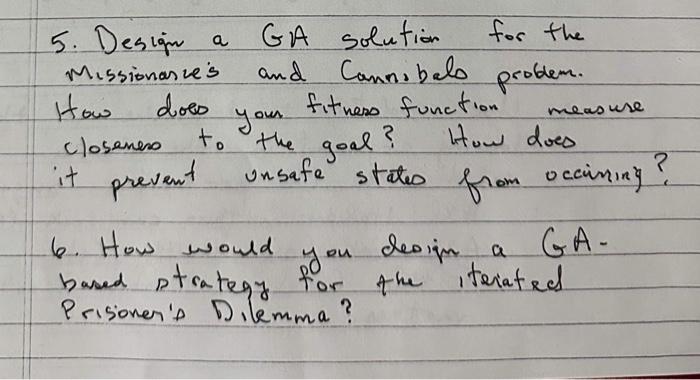 5. Design a GA solution for the
Missionarie's and Cannibals problem.
How does your fitness function measure
closeness to the goal? How does
it prevent unsafe states from occuring?
6. How would you design a GA-
based strategy for the iterated
Prisoner's Dilemma?